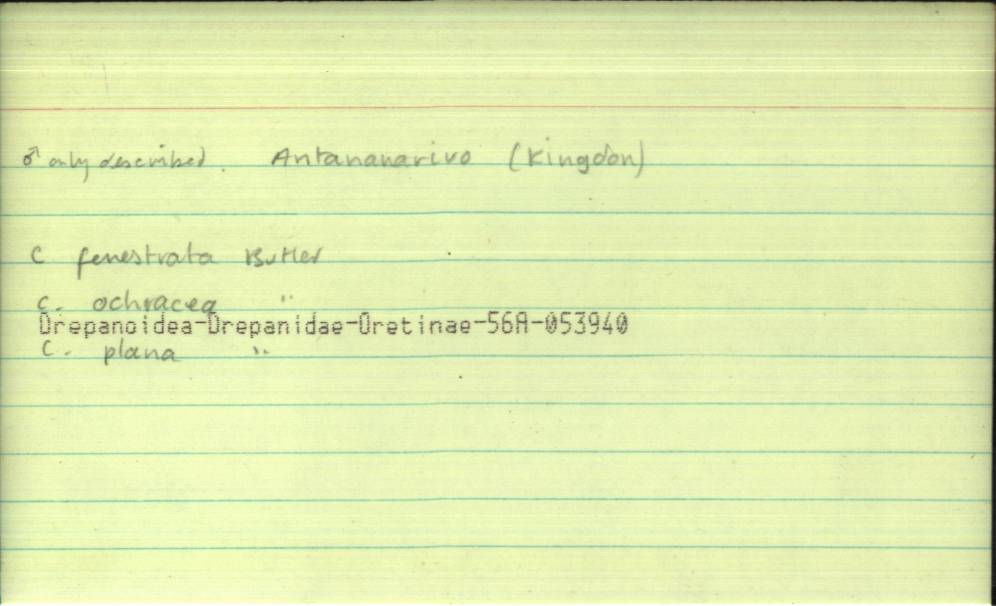 ♂ only described. Antananarivo (Kingdon)
C fenestrata Butler
C. ochracea "
Drepanoidea-Drepanidae-Oretinae-56A-053940
C. plana "